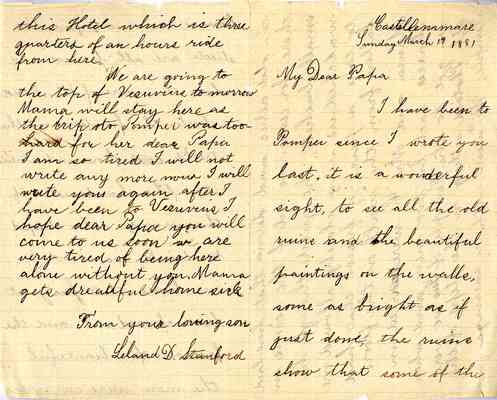 Castellenamare
Sunday March 19 1881
My Dear Papa
I have been to
Pompei since I wrote you
last, it is a wonderful
sight, to see all the old
ruins and the beautiful
paintings on the walls,
some as bright as if
just done, the ruins
show that some of the
this Hotel which is three
quarters of an hours ride
from here.
We are going to
the top of Vesuvius to morrow
Mama will stay here as
the trip to Pompei was too
hard for her dear Papa
I am so tired I will not
write any more now I will
write you again after I
have been to Vesuvius I
hope dear Papa you will
come to us soon we are
very tired of being here
alone without you. Mama
gets dreadful home sick
From your loving son
Leland D. Stanford